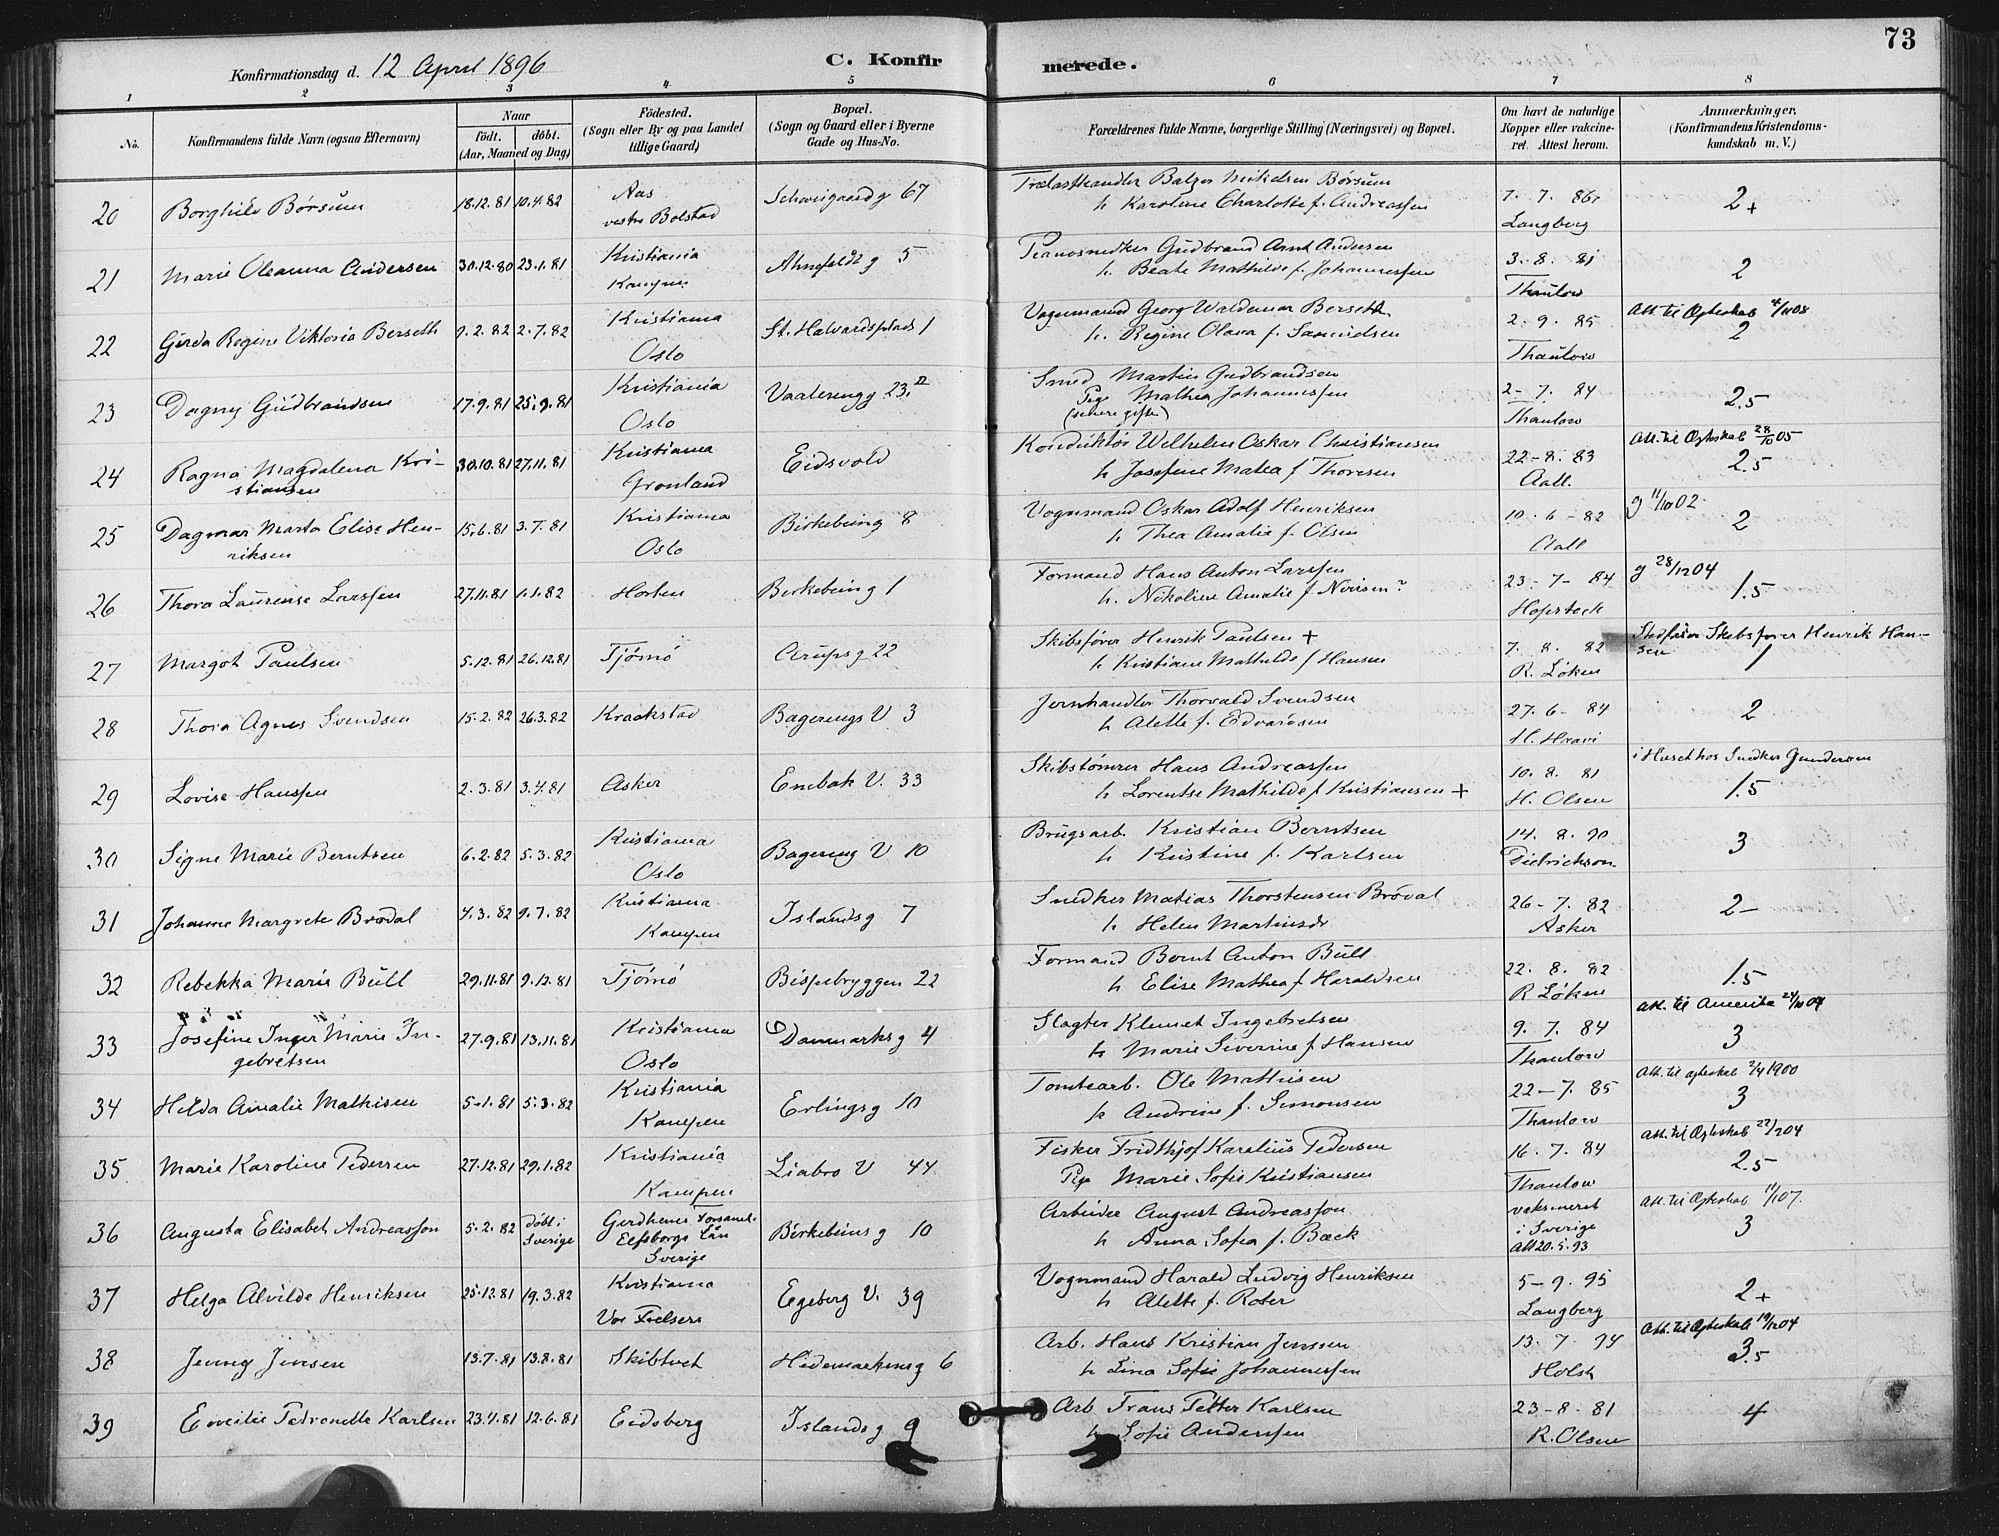 73
Konfirmationsdag d. 12 April 1896
C. Konfirmerede.
1 2 3 4 5 6 7 8
No.
Konfirmandens fulde Navn (ogsaa Efternavn)
Naar
født. døbt.
(Aar, Maaned og Dag)
Fødested.
(Sogn eller By og paa Landet
tillige Gaard)
Bopæl.
(Sogn og Gaard eller i Byerne
Gade og Hus-No.
Forældrenes fulde Navne, borgerlige Stilling (Næringsvei) og Bopæl.
Om havt de naturlige
Kopper eller vakcine-
ret. Attest herom.
Anmærkninger.
(Konfirmandens Kristendoms-
kundskab m. V.)
20 Borghild Børsum 18.12.81 10.4.82 Aas Schweigaard g 67 Trælasthandler Balzer Mikelsen Børsum 7. 7. 86
vestre Bolstad h Karoline Charlotte f. Andreassen Langberg 2+
21 Marie Oleanna Andersen 30.12.80 23.1.81 Kristiania Ahnefeldt g 5 Pianosnedker Gudbrand Arnt Andersen 3. 8. 81
Kampen h. Beate Mathilde f. Johannessen Thaulow 2
22 Gerda Regine Viktoria Berseth 9.2.82 2.7.82 Kristiania St. Halvardsplads 1 Vognmand Georg Waldemar Berseth 2. 9. 85 Att. til Ægteskab 4/10 08
Oslo h. Regine Olava f. Samuelsen Thaulow 2
23 Dagny Gudbrandsen 17.9.81 25.9.81 Kristiania Vaalereng g 23.II Smed Martin Gudbrandsen 2-7. 84
Oslo Pige Mathea Johannessen Thaulow 2.5
(senere gifte)
24 Ragna Magdalena Kri- 30.10.81 27.11.81 Kristiania Eidsvold Konduktør Wilhelm Oskar Christiansen 22-8. 83 Att. til Ægteskab 28/10 05
stiansen Grønland h Josefine Matea f Thoresen Aall. 2.5
25 Dagmar Marta Elise Hen- 15.6.81 3.7.81 Kristiania Birkebeing 8 Vognmand Oskar Adolf Henriksen 10. 6-82 g 11/10 02
riksen Oslo h. Thea Amalie f. Olsen Aall 2
26 Thora Laurense Larssen 27.11.81 1.1.82 Horten Birkebeing 1 Formand Hans Anton Larssen 23-7-84 g 28/12 04
h. Nikoline Amalie f. Hopstock 1.5
27 Margot Paulsen 5.12.81 26.12.81 Tjømø Arups g 22 Skibsfører Henrik Paulsen + 7. 8. 82 Stedfar Skibsfører Henrik Han-
h Kristiane Mathilde f Hansen R. Løken sen 1
28 Thora Agnes Svendsen 15.2.82 26.3.82 Kraakstad Bagerengs V 3 Jernhandler Thorvald Svendsen 27. 6-84 2
h Alette f. Edvardsen
29 Lovise Hanssen 2.3.81 3.4.81 Asker Enebak V. 33 Skibstømrer Hans Andreassen 10. 8. 81 i Huset hos Snedker Gundersen
h Lorentse Mathilde f Kristiansen + H. Olsen 1.5
30 Signe Marie Berntsen 6.2.82 5.3.82 Kristiania Bagereng V 10 Brugsarb. Kristian Berntsen 14. 8. 90
Oslo h Kristine f. Karlsen Dietrichson 3
31 Johanne Margrete Brødal 4.3.82 9.7.82 Kristiania Islands g 7 Snedker Matias Thorstensen Brødal 26-7. 82
Kampen h Helen Martinsdr Asker 2-
32 Rebekka Marie Bull 29.11.81 9.12.81 Tjømø Bispebryggen 22 Formand Bernt Anton Bull 22. 8. 82
h Elise Mathea f Haraldsen R Løken 1.5
33 Josefine Inger Marie In- 27.9.81 13.11.81 Kristiania Danmarks g 4 Slagter Klemet Ingebretsen 9. 7. 84 Att. til Amerika 24/10 04
gebretsen Oslo h Marie Siverine f Hansen Thaulow 3
34 Helda Amalie Mathisen 5.1.81 5.3.82 Kristiania Erlings g 10 Tomtearb. Ole Mathisen 22-7. 85 Att. til ægteskab 2/4 1900
Kampen h Andrine f. Simonsen Thaulow 3
35 Marie Karoline Pedersen 27.12.81 29.1.82 Kristiania Liabro V 44 Fisker Fridthjof Karelius Pedersen 16. 7. 84 Att. til Ægteskab 22/2 04
Kampen Pige Marie Sofie Kristiansen Thaulow 2.5
36 Augusta Elisabet Andreasson 5.2.82 døbt i Birkebeins g 10 Arbeider August Andreasson vaksineret Att. til Ægteskab 11/1 07.
Sverige Elfsborgs Län h Anna Sofia f. Bæck i Sverige 3
Sverige Att 20.5.93
37 Helga Alvilde Henriksen 25.12.81 19.3.82 Kristiania Egeberg V. 39 Vognmand Harald Ludvig Henriksen 5-9. 95
Vor Frelsers h Alette f. Roter Langberg 2+
38 Jenny Jensen 13.7.81 13.8.81 Skibtvet Hedemarkens g 6 Arb. Hans Kristian Jenssen 13. 7. 94 Att. til Ægteskab 19/12 04
h Lina Sofie Johannessen Holst 3.5
39 Emilie Petronelle Karlsen 23.4.81 12.6.81 Eidsberg Islands g 9 Arb Frans Petter Karlsen 23-8-81
h Sofie Anderssen R. Olsen 4